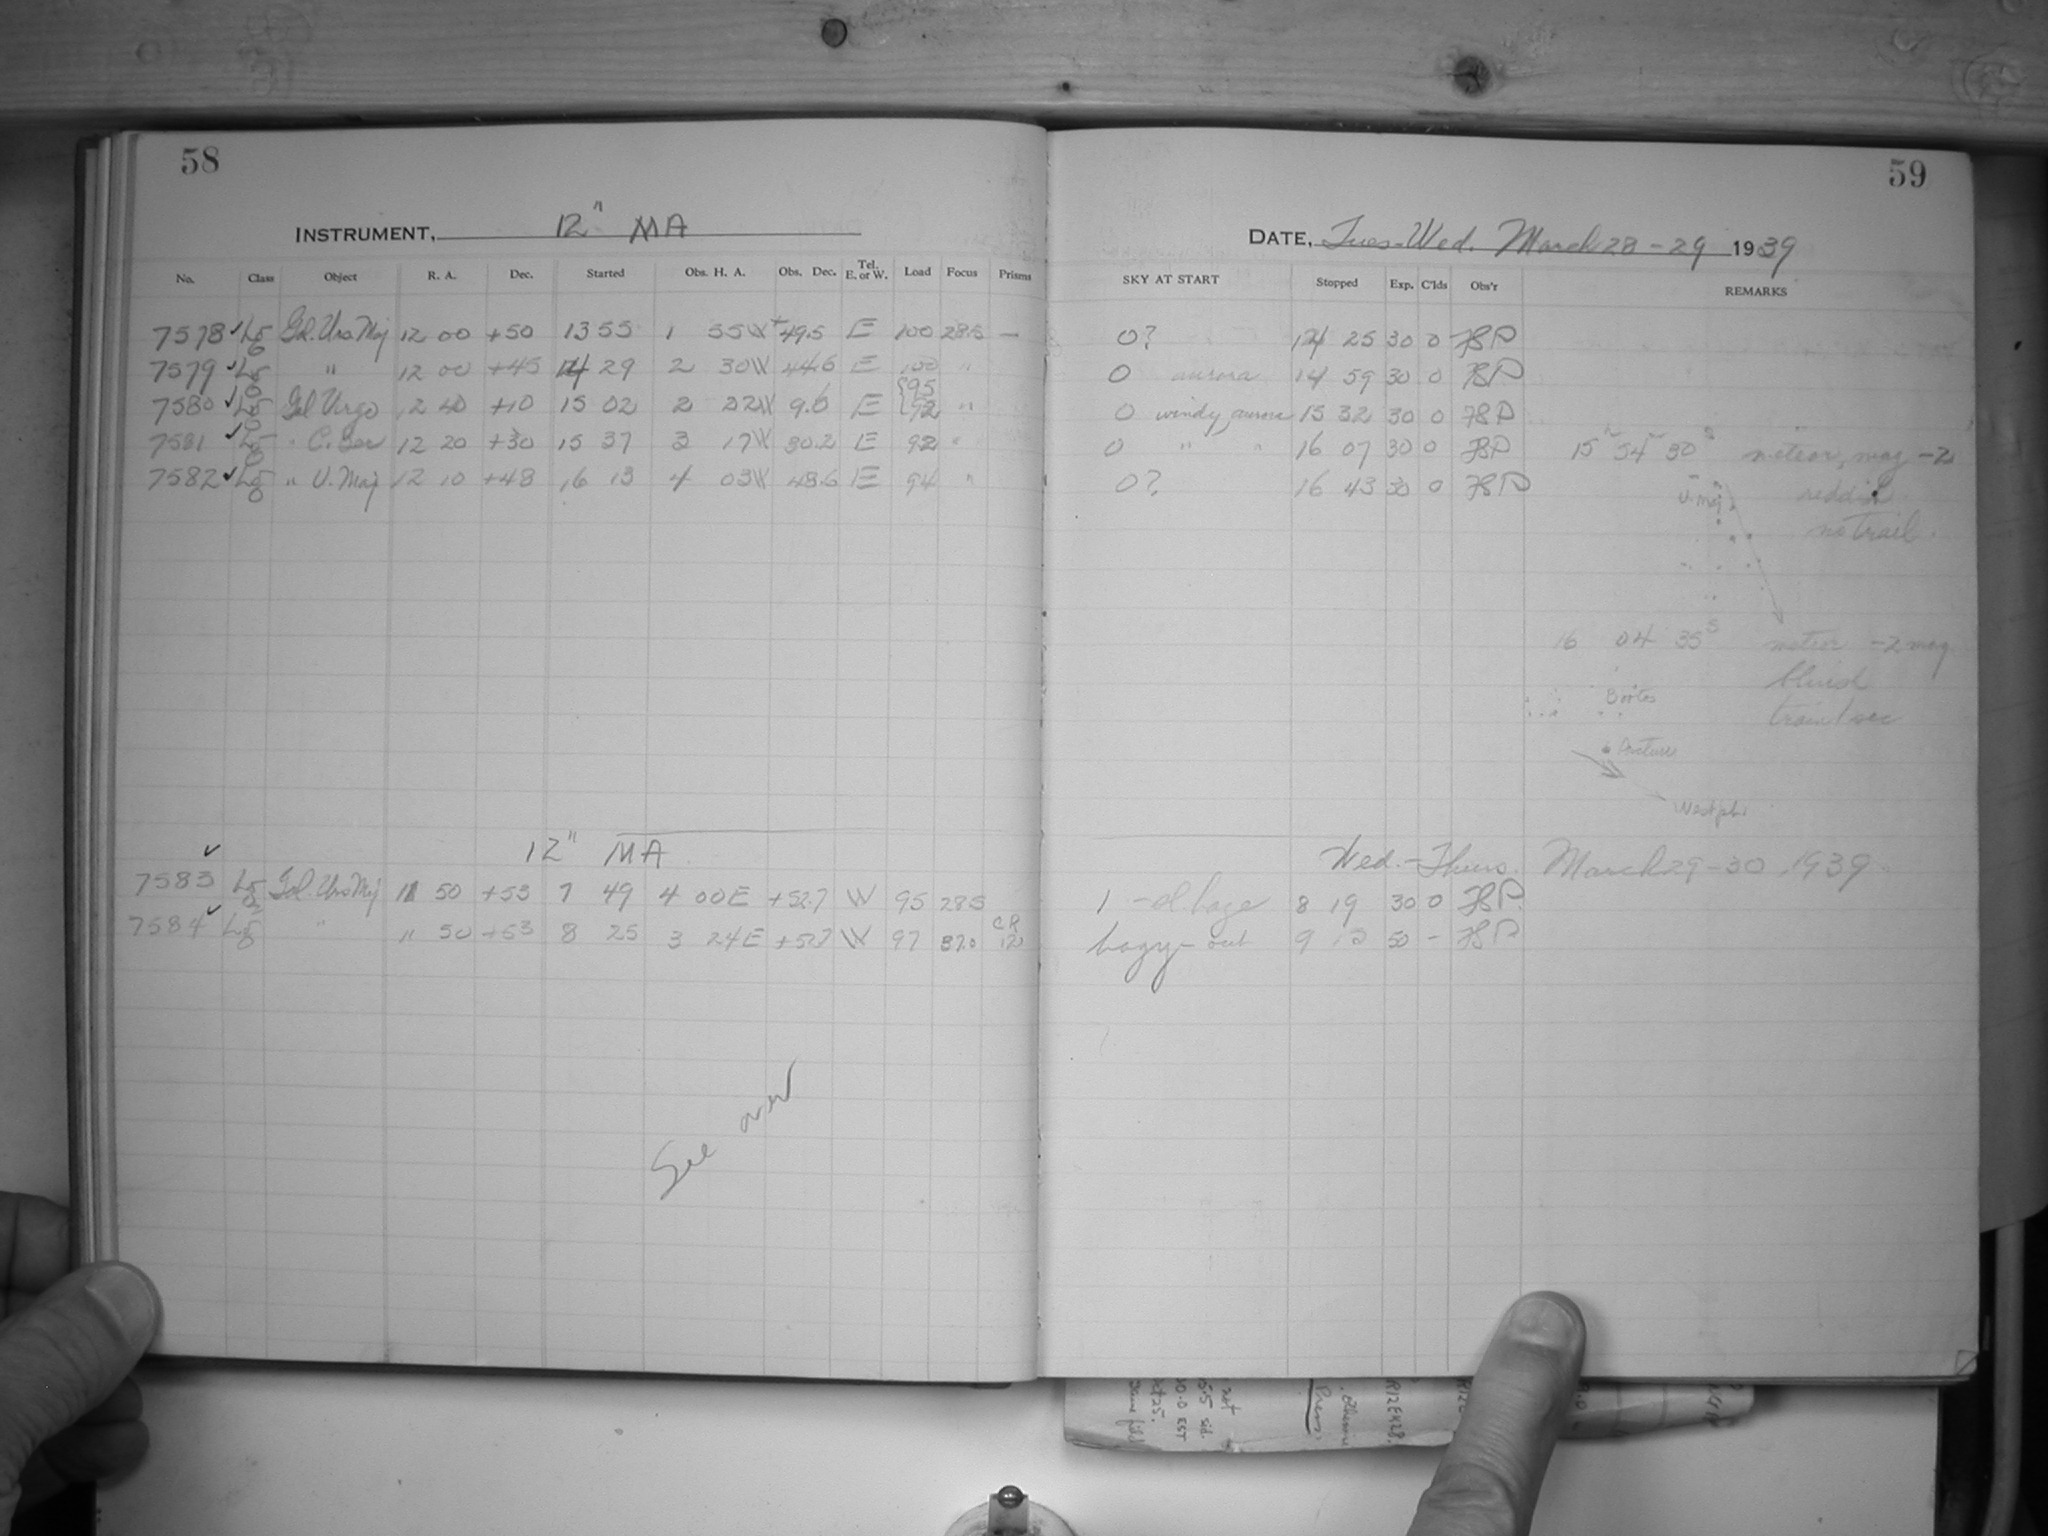 58
INSTRUMENT, 12" MA
No. Class Object R. A. Dec. Started Obs. H. A. Obs. Dec. Tel. E. or W. Load Focus Prisms
7578 ✓ Gal. Urs Maj 12 00 +50 13 55 1 55W +49.5 E 100 28.5 —
7579 ✓ " 12 00 +45 14 29 2 30W 44.6 E 100 "
7580 ✓ Gal Virgo 12 40 +10 15 02 2 22W 9.6 E {95 92 "
7581 ✓ " C. Ber 12 20 +30 15 37 3 17W 30.2 E 92 "
7582 ✓ " U. Maj 12 10 +48 16 13 4 03W 48.6 E 94 "
12" MA
7583 ✓ Gal. Urs Maj 11 50 +53 7 49 4 00E +52.7 W 95 28.5
7584 ✓ " " 50 +53 8 25 3 24E +52.7 W 97 37.0
See over
59
DATE, Tues-Wed. March 28-29 1939
SKY AT START Stopped Exp. C'lds Obs'r REMARKS
0? 14 25 30 0
0 aurora 14 59 30 0
0 windy, aurora 15 32 30 0
0 " " 16 07 30 0 15h 54m 30s meteor, mag -2
0? 16 43 30 0 U. Maj reddish
no trail.
16 04 35s meteor -2 mag
bluish
Bootes train 1 sec
Arcturus
Wed.-Thurs. March 29-30, 1939
1 - haze 8 19 30 0
hazy - out 9 50 -